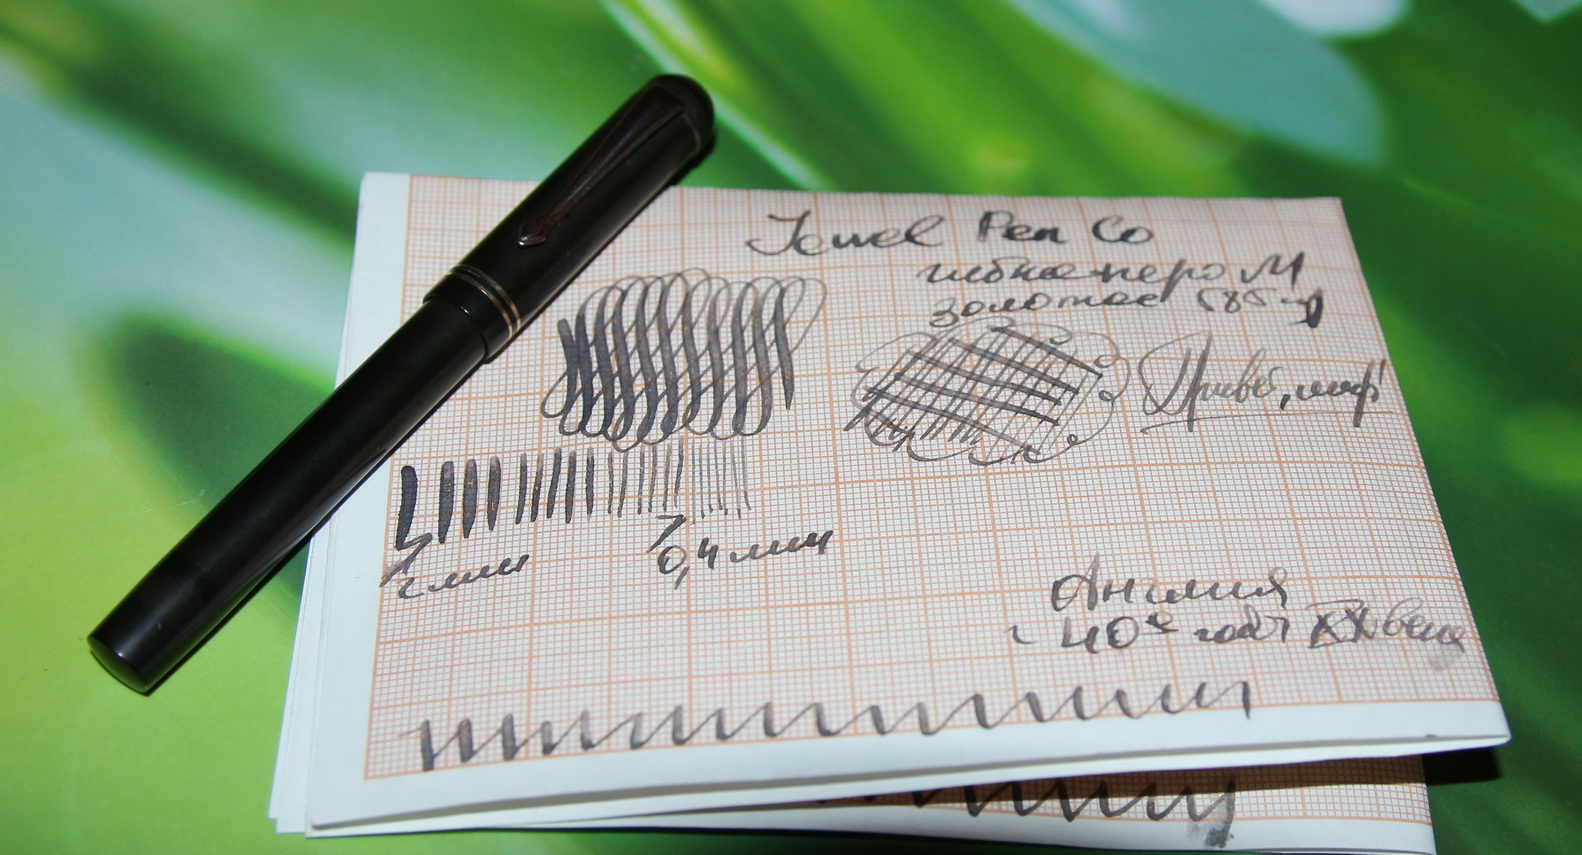 Jewel Pen Co
гибкое перо М
золотое 585
Привет, мир!
2 мм
0,4 мм
Англия
~ 40е годы XX века